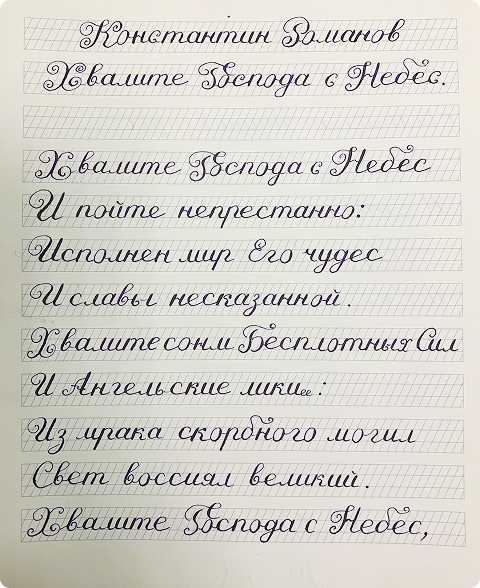 Константин Романов
Хвалите Господа с Небес.
Хвалите Господа с Небес
И пойте непрестанно:
Исполнен мир Его чудес
И славы несказанной.
Хвалите сонм Бесплотных Сил
И Ангельские лики:
Из мрака скорбного могил
Свет воссиял великий.
Хвалите Господа с Небес,